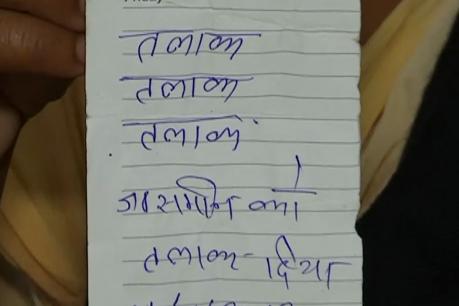 तलाक
तलाक
तलाक
जासमीन को
तलाक - दिया